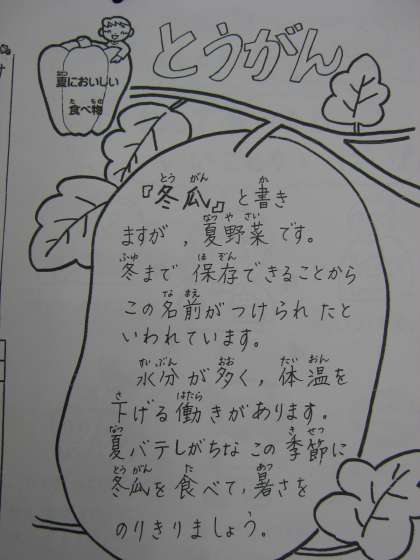 とうがん
夏においしい
食べ物
『冬瓜』と書き
ますが，夏野菜です。
冬まで保存できることから
この名前がつけられたと
いわれています。
水分が多く，体温を
下げる働きがあります。
夏バテしがちなこの季節に
冬瓜を食べて，暑さを
のりきりましょう。